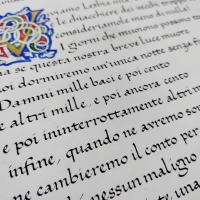 iamo Lesbia mia
le chiacchiere dei vecchi troppo
consideriamole meno di
I giorni che muoiono possono to
a se questa nostra breve luce muore
noi dormiremo un'unica notte senza fi
Dammi mille baci e poi cento
e altri mille, e poi ancora cento.
e poi ininterrottamente altri m
infine, quando ne avremo son
ne cambieremo il conto per
nessun maligno
una